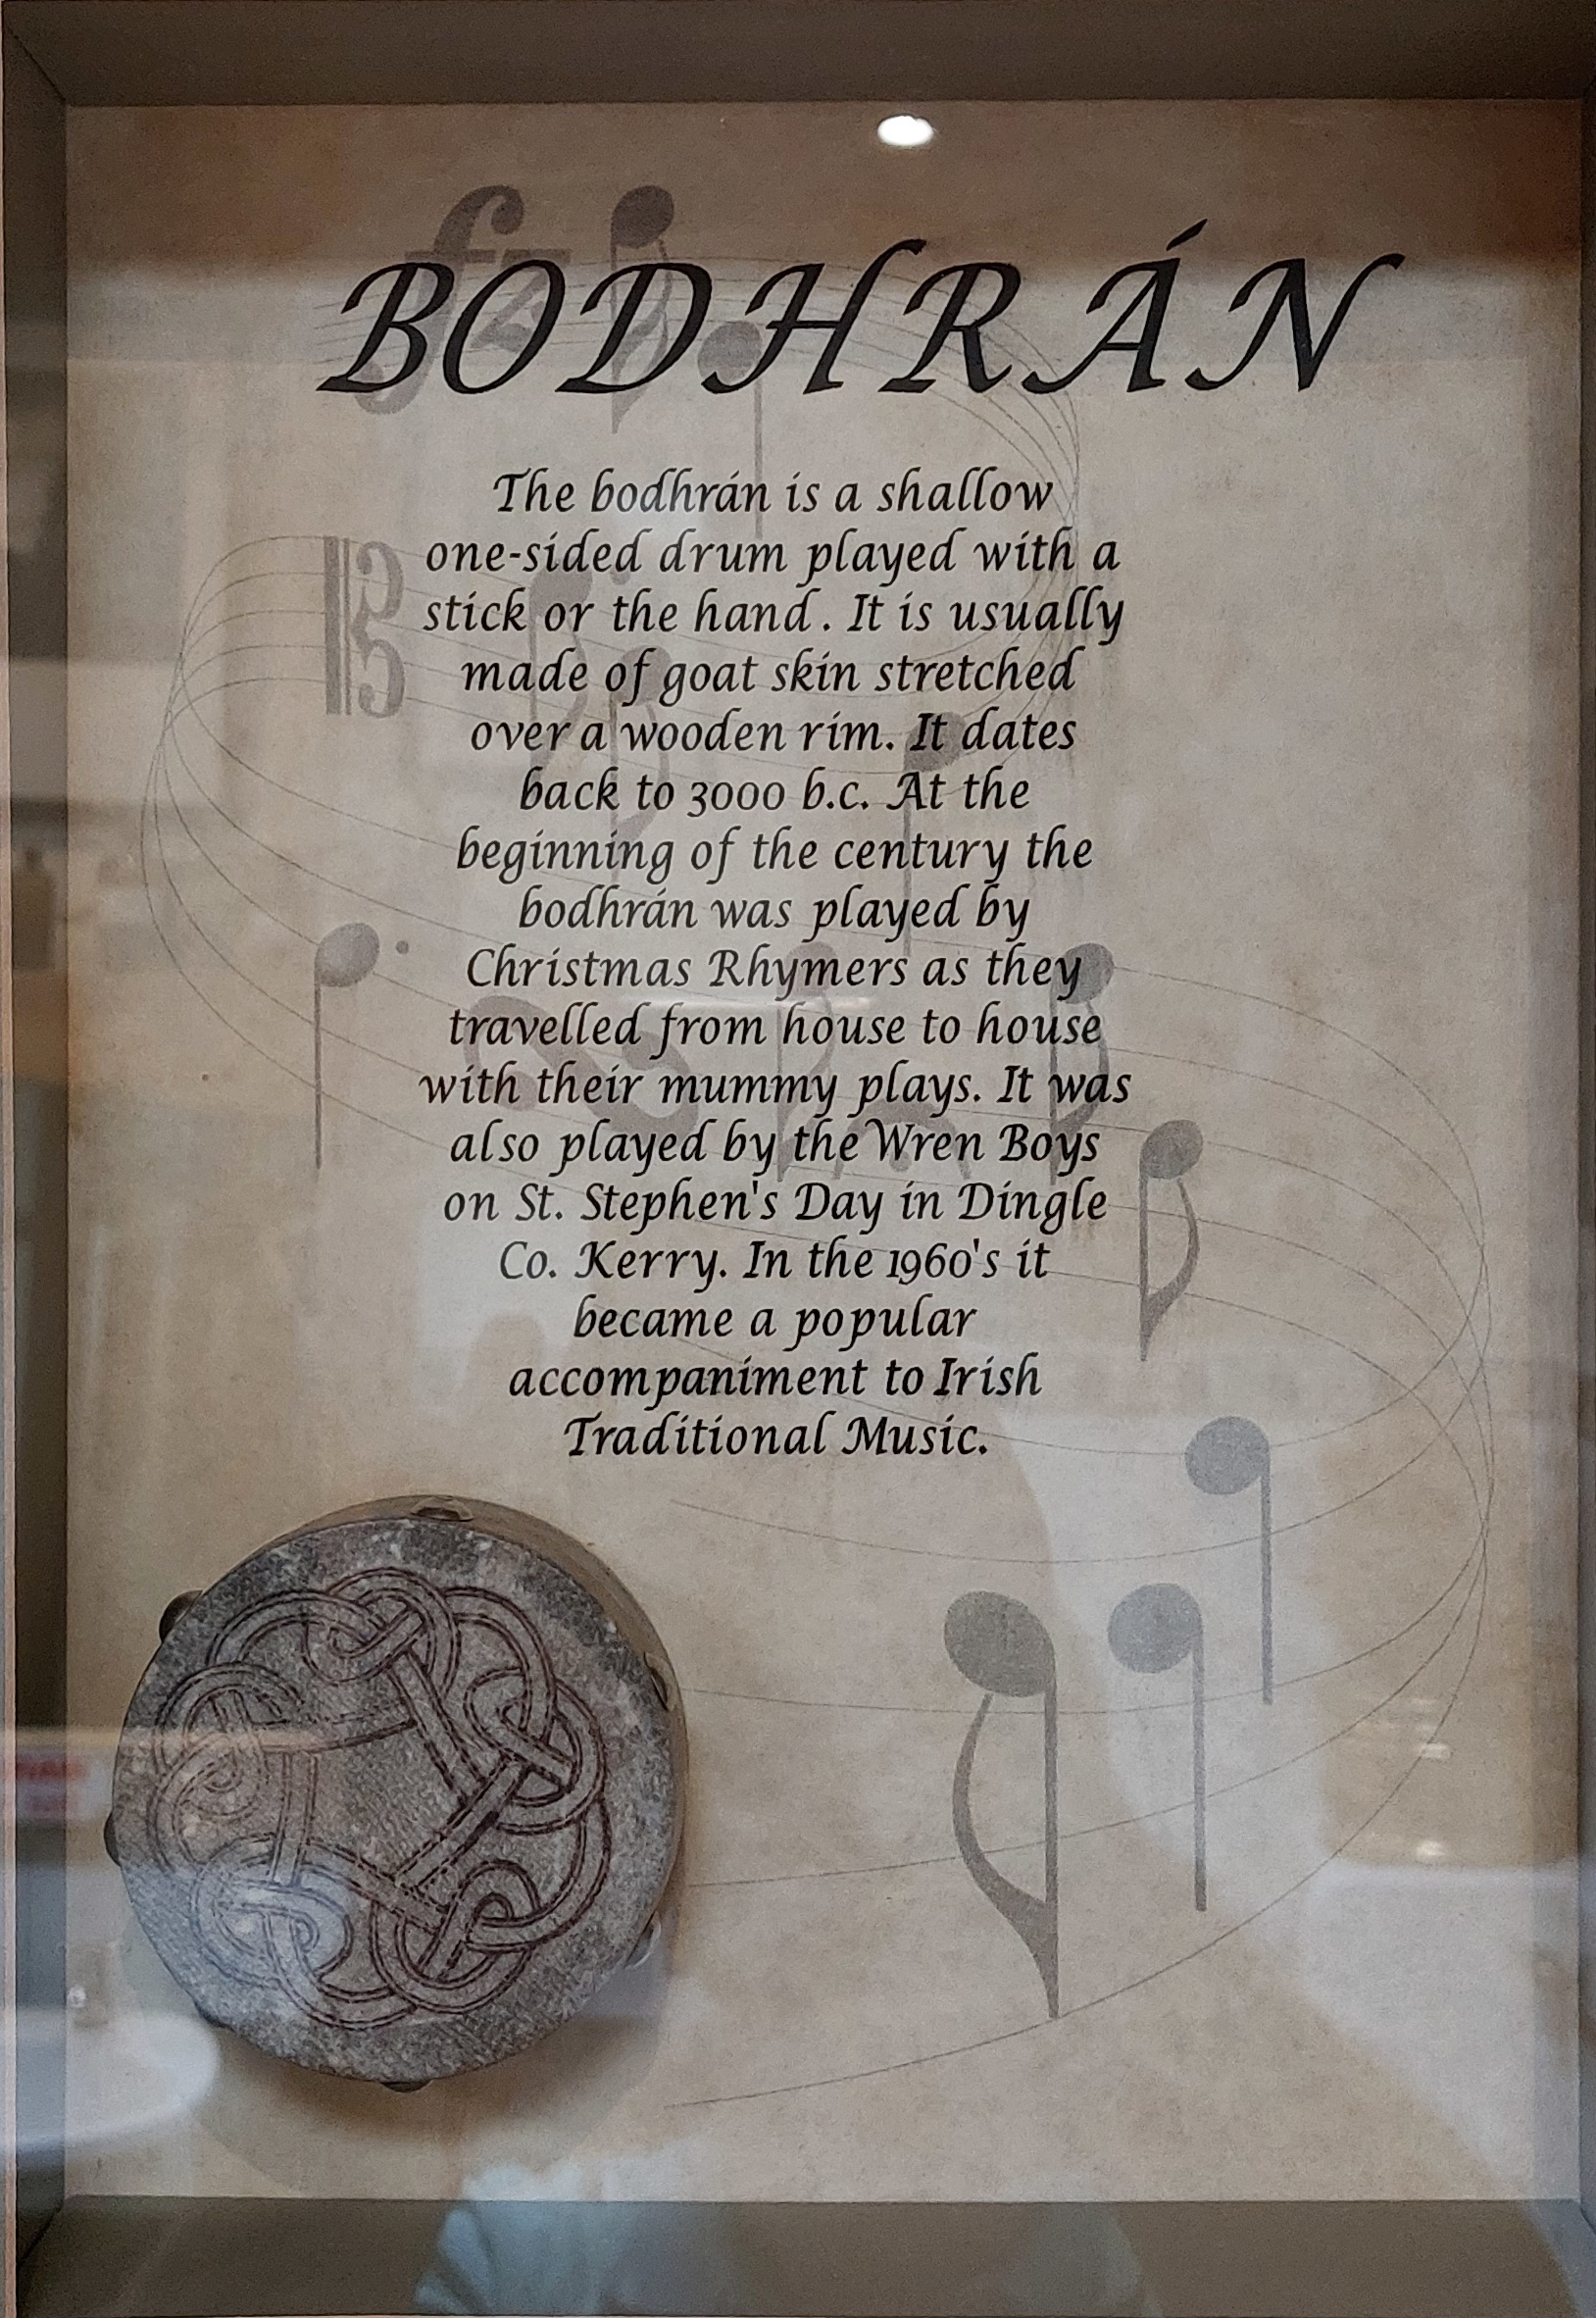 BODHRÁN
The bodhrán is a shallow
one-sided drum played with a
stick or the hand. It is usually
made of goat skin stretched
over a wooden rim. It dates
back to 3000 b.c. At the
beginning of the century the
bodhrán was played by
Christmas Rhymers as they
travelled from house to house
with their mummy plays. It was
also played by the Wren Boys
on St. Stephen's Day in Dingle
Co. Kerry. In the 1960's it
became a popular
accompaniment to Irish
Traditional Music.